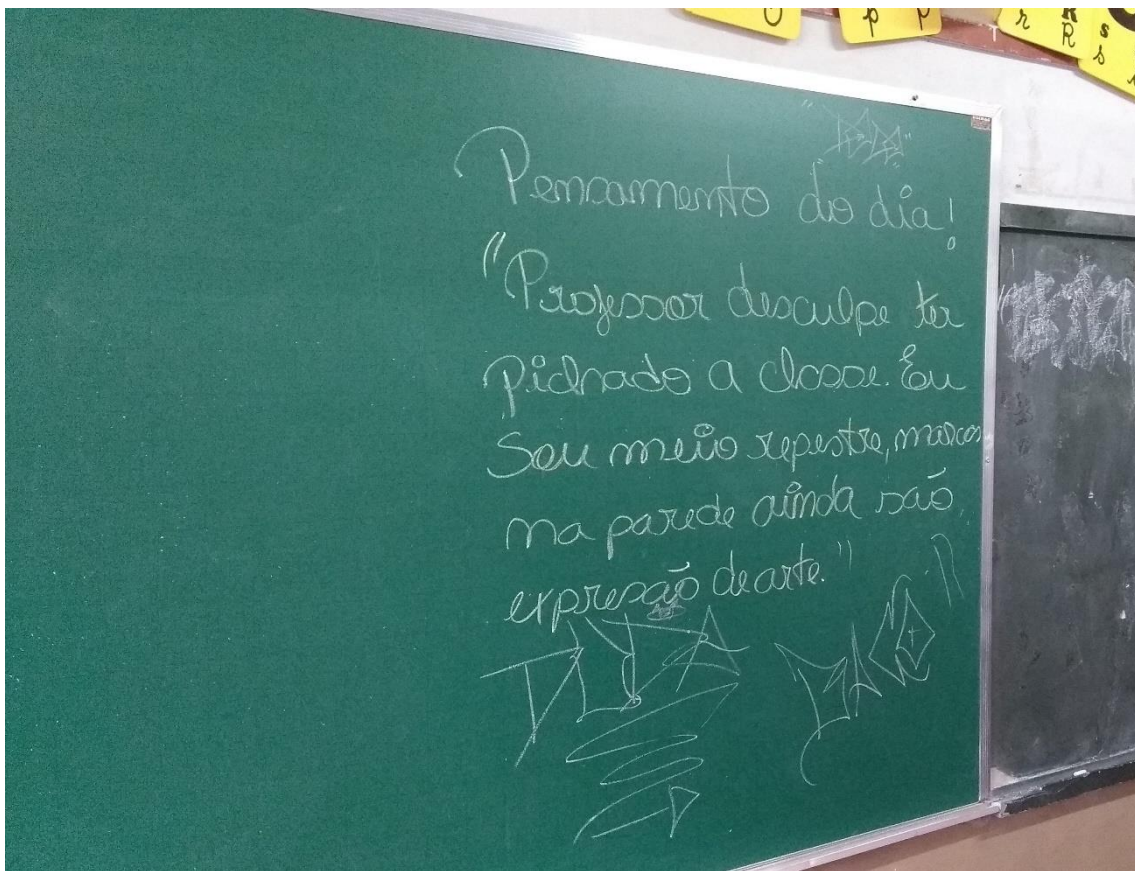 Pensamento do dia!
"Professor desculpe ter
pichado a classe. Eu
Sou meio repestre, marcas
na parede ainda são
expresão de arte."
p
p
r
R
R
s
s